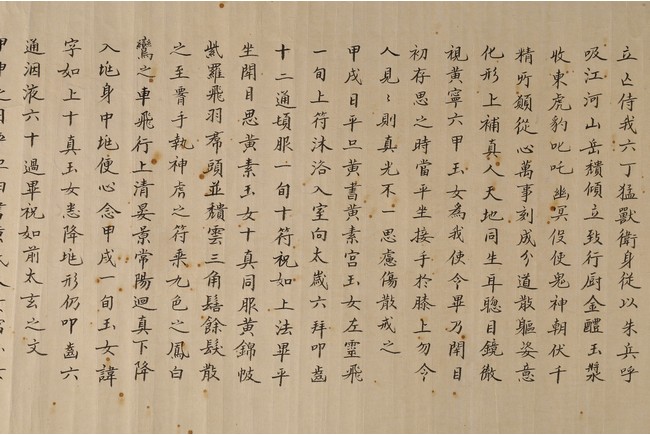 立亡侍我六丁猛獸衛身從以朱兵呼
吸江河山岳穨傾立致行廚金醴玉漿
收束虎豹叱吒幽冥役使鬼神朝伏千
精所願從心萬事刻成分道散軀姿意
化形上補真人天地同生耳聰目鏡徹
視黃寧六甲玉女為我使令畢乃開目
初存思之時當平坐接手於膝上勿令
人見々則真光不一思慮傷散戒之
甲戌日平旦黃書黃素宮玉女左靈飛
一旬上符沐浴入室向太歲六拜叩齒
十二通頓服一旬十符祝如上法畢平
坐閉目思黃素玉女十真同服黃錦帔
紫羅飛羽帬頭並穨雲三角髻餘髮散
之至腰手執神虎之符乘九色之鳳白
鸞之車飛行上清晏景常陽迴真下降
入垗身中垗便心念甲戌一旬玉女諱
字如上十真玉女悉降垗形仍叩齒六
通咽液六十過畢祝如前太玄之文